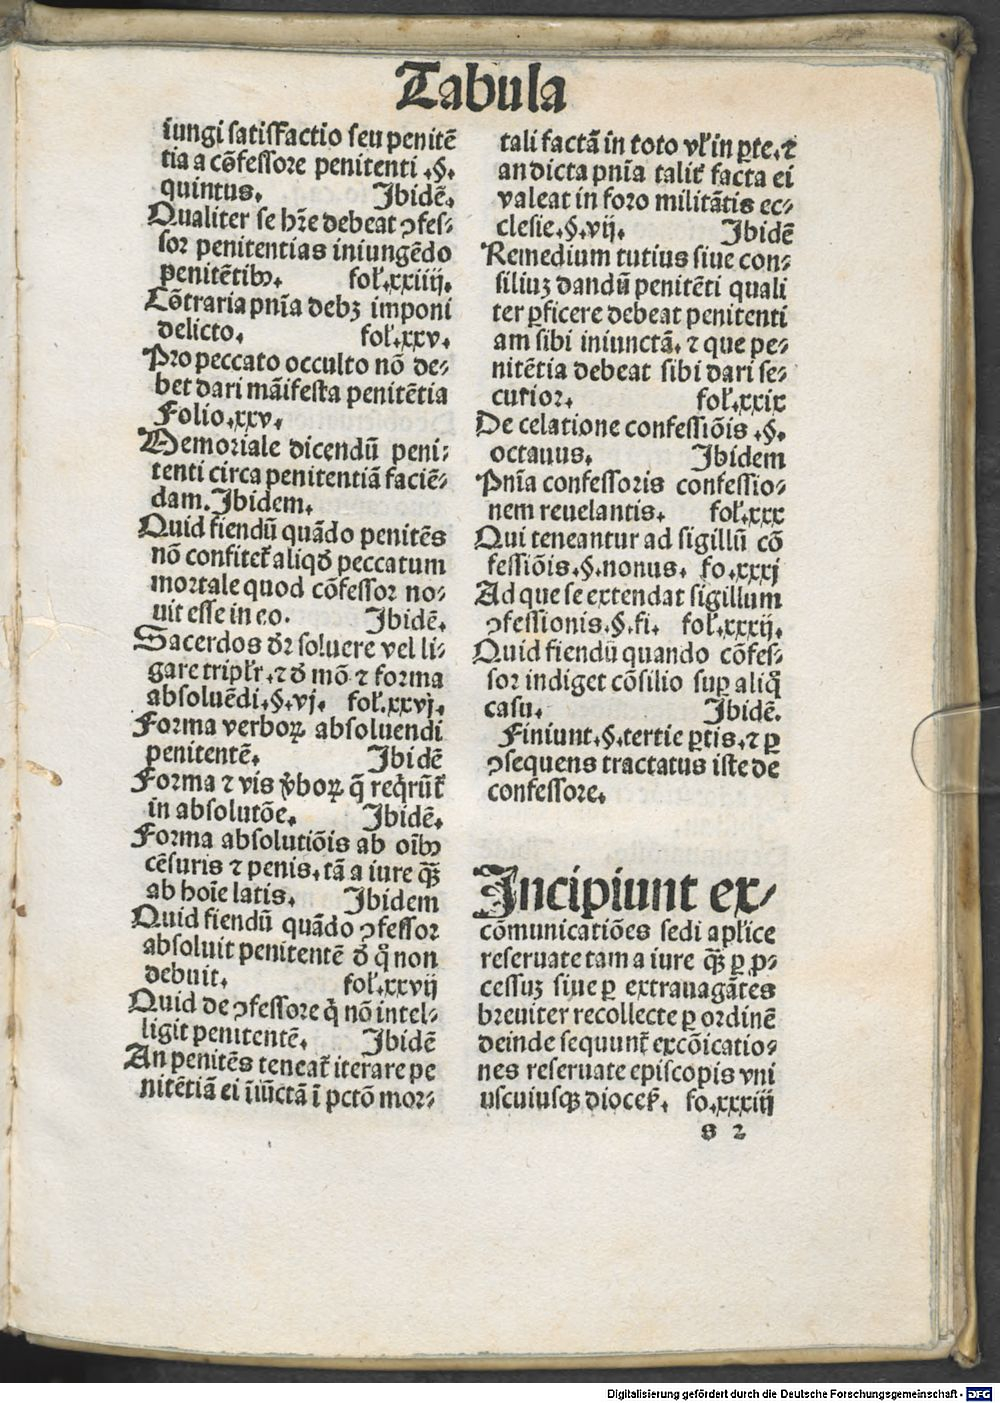 Tabula
iungi satisfactio seu penitē
tia a cōfessore penitenti .§.
quintus. Ibidē.
Qualiter se hr̄e debeat ꝯfes⸗
sor penitentias iniungēdo
penitētibꝰ. fol̕.xxiiij.
Cōtraria pn̄ia debꝫ imponi
delicto. fol̕.xxv.
Pro peccato occulto nō de⸗
bet dari māifesta penitētia
Folio.xxv.
Memoriale dicendū peni⸗
tenti circa penitentiā faciē⸗
dam. Ibidem.
Quid fiendū quādo penitēs
nō confitet̕ aliqd̕ peccatum
mortale quod cōfessor no⸗
uit esse in eo. Ibidē.
Sacerdos dr̄ soluere vel li⸗
gare tripl̕r .⁊ d̕ mō ⁊ forma
absoluēdi.§.vj. fol̕.xxvj.
Forma verboꝝ absoluendi
penitentē. Ibidē
Forma ⁊ vis v̕boꝝ q̄ reqͥrūt̕
in absolutōe. Ibidē.
Forma absolutiōis ab oībꝰ
cēsuris ⁊ penis. tā a iure qꝫ̄
ab hoīe latis. Ibidem
Quid fiendū quādo ꝯfessor
absoluit penitentē d̕ qͦ non
debuit. fol̕.xxvij
Quid de ꝯfessore qͥ nō intel⸗
ligit penitentē. Ibidē
An penitēs teneat̕ iterare pe
nitētiā ei īiūctā ī pctō mor⸗
tali factā in toto vl̕ in ꝑte.⁊
an dicta pn̄ia talit̕ facta ei
valeat in foro militātis ec⸗
clesie.§.vij. Ibidē
Remedium tutius siue con⸗
siliuꝫ dandū penitēti quali
ter ꝑficere debeat penitenti
am sibi iniunctā. ⁊ que pe⸗
nitētia debeat sibi dari se⸗
curior. fol̕.xxix
De celatione confessiōis .§.
octauus. Ibidem
Pn̄ia confessoris confessio⸗
nem reuelantis. fol̕.xxx
Qui teneantur ad sigillū cō
fessiōis.§.nonus. fo.xxxj
Ad que se extendat sigillum
ꝯfessionis.§.fi. fol̕.xxxij.
Quid fiendū quando cōfes⸗
sor indiget cōsilio suꝑ aliqͦ
casu. Ibidē.
Finiunt.§.tertie ꝑtis.⁊ ꝑ
ꝯsequens tractatus iste de
confessore.
Incipiunt ex⸗
cōmunicatiōes sedi apl̕ice
reseruate tam a iure qꝫ̄ ꝑ ꝓ⸗
cessuꝫ siue ꝑ extrauagātes
breuiter recollecte ꝑ ordinē
deinde sequunt̕ excōicatio⸗
nes reseruate episcopis vni
uscuiusqꝫ dioces̕. fo.xxxiij
S 2
Digitalisierung gefördert durch die Deutsche Forschungsgemeinschaft - DFG